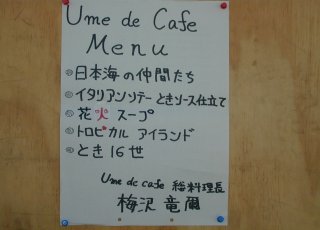 Ume de Cafe
Menu
◎日本海の仲間たち
◎イタリアンソテー ときソース仕立て
◎花火 スープ
◎トロピカル アイランド
◎とき16世
Ume de cafe 総料理長
梅沢 竜爾